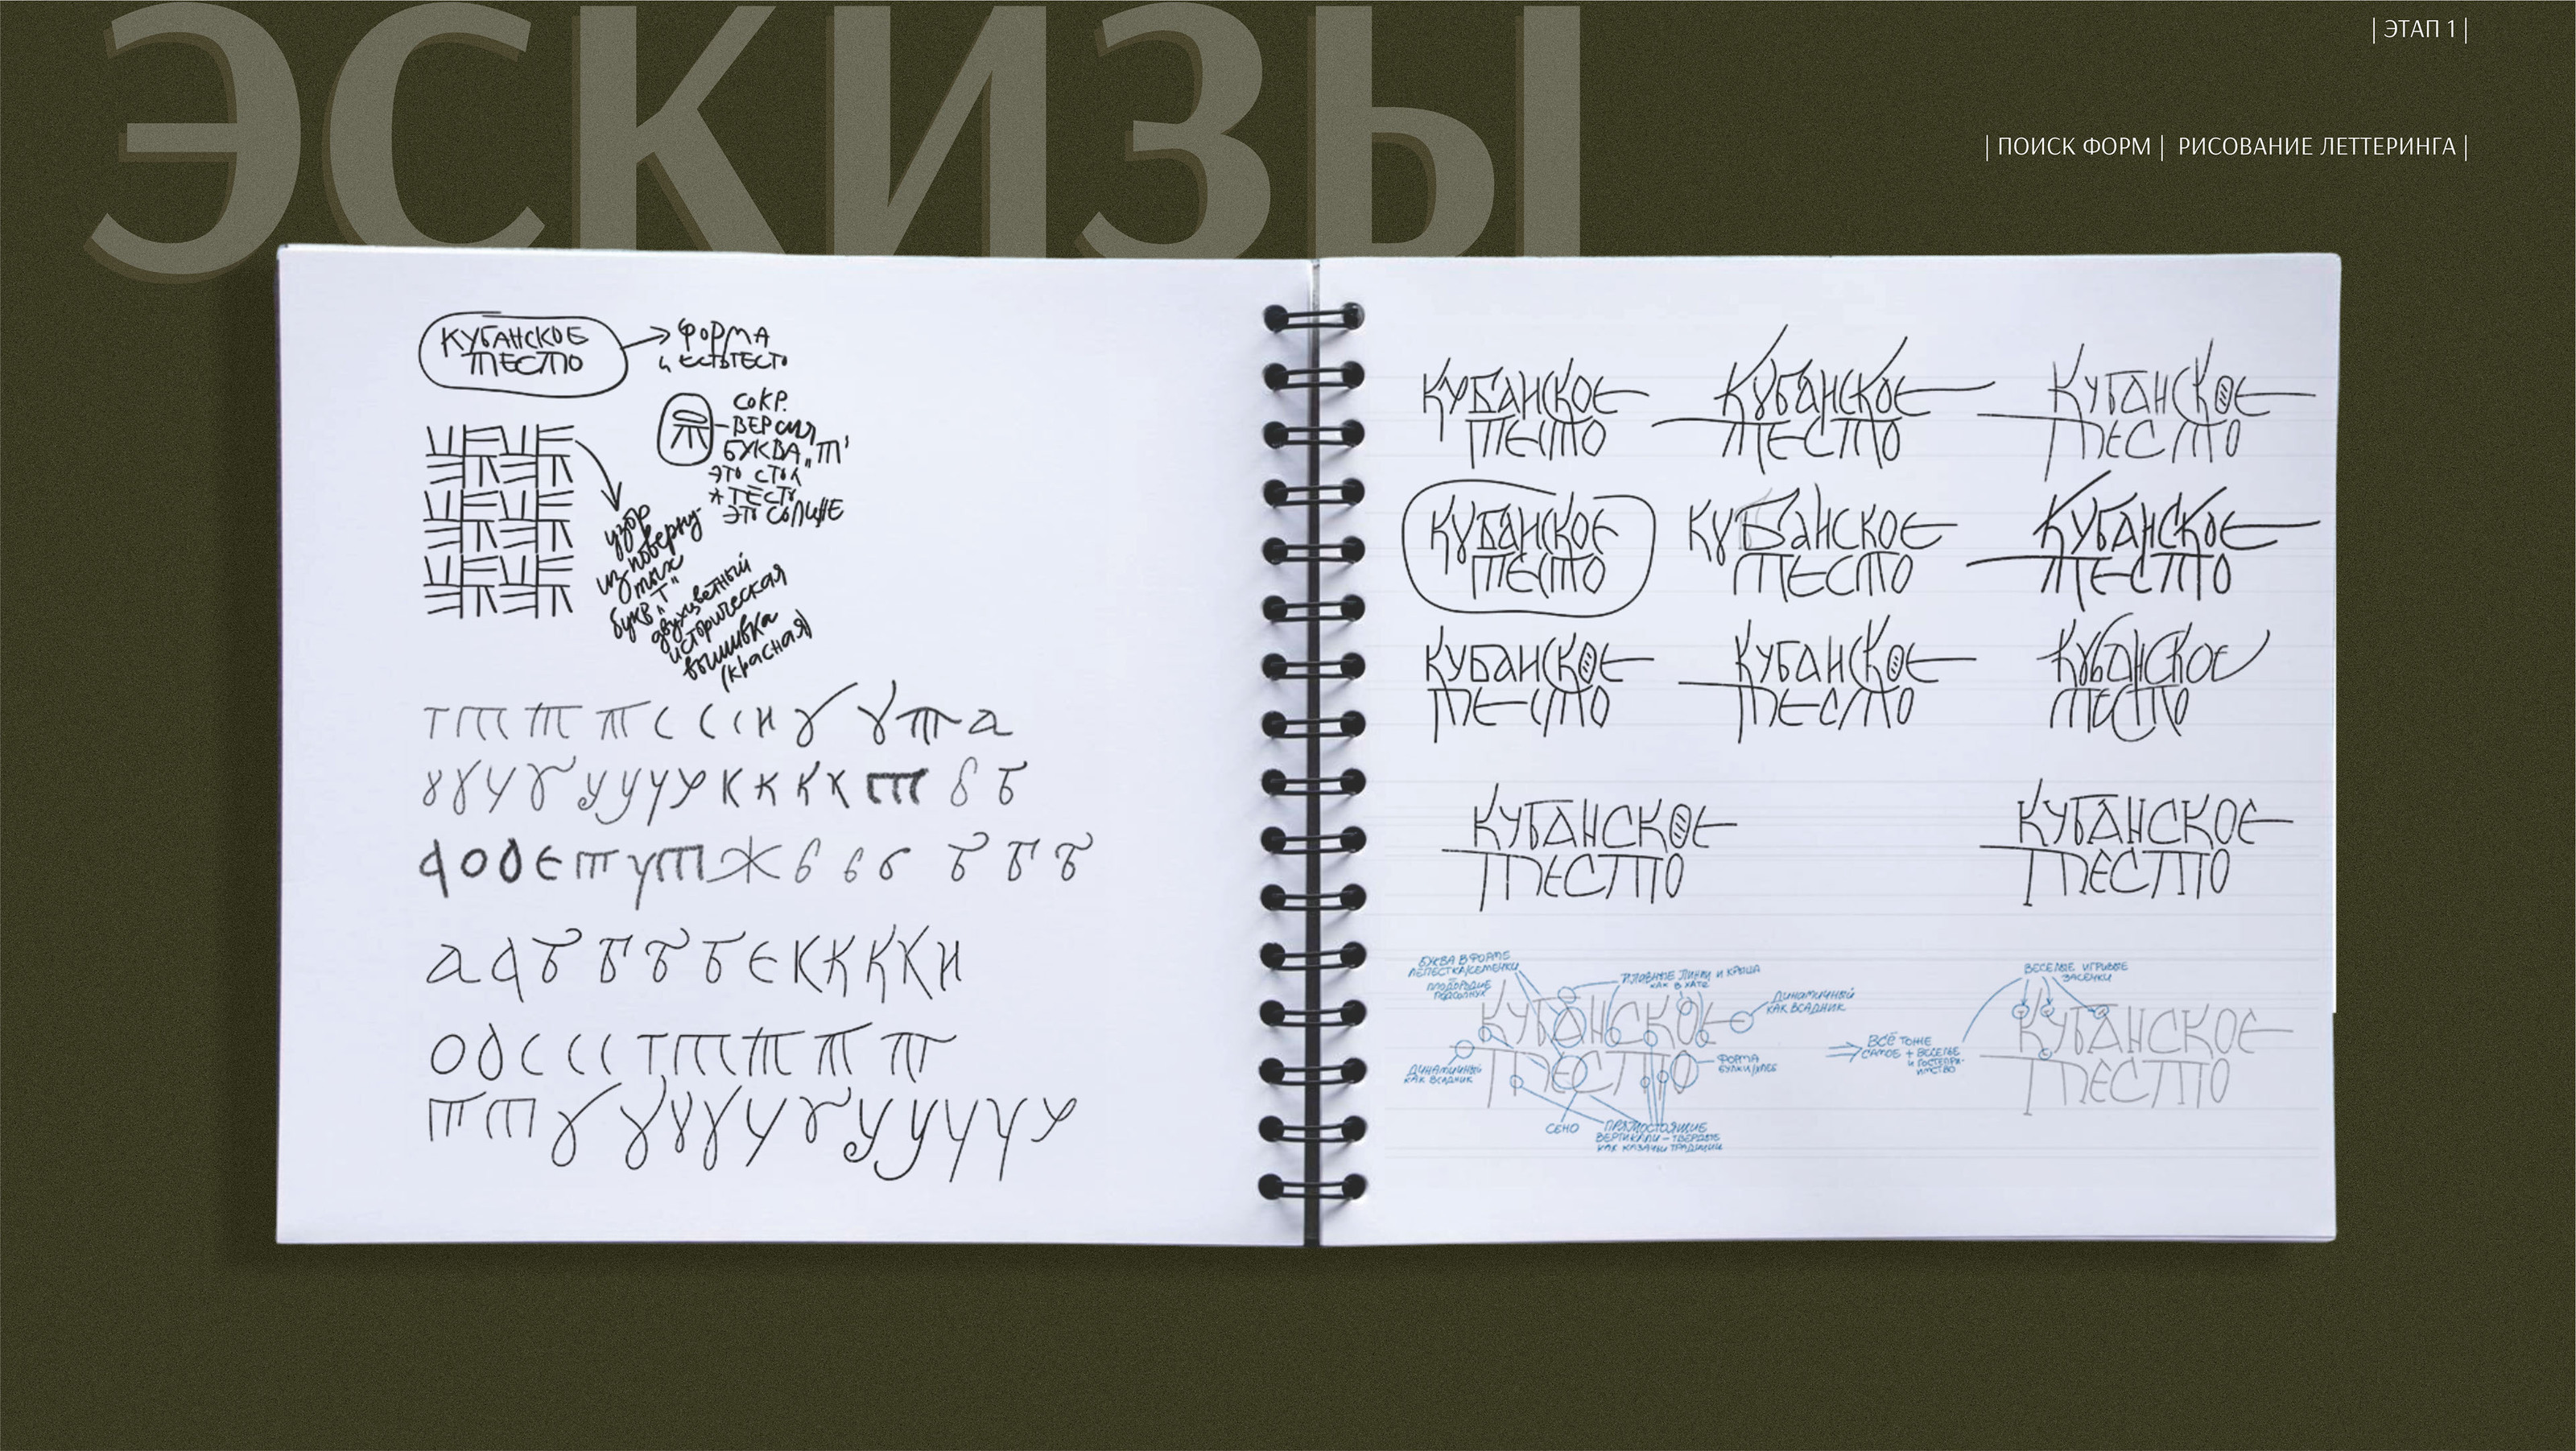 ЭСКИЗЫ
| ЭТАП 1 |
| ПОИСК ФОРМ | РИСОВАНИЕ ЛЕТТЕРИНГА |
КУБАНСКОЕ
ТЕСТО
ФОРМА
и ЕСТЬ ТЕСТО
СОКР.
ВЕРСИЯ
БУКВА „Т"
ЭТО СТОЛ
* ТЕСТО
ЭТО СОЛНЦЕ
узор
из поверну-
тых
букв „Т"
двухцветный
историческая
вышивка
(красная)
т т т т с с с н у у т а
у у у у у у у у к к к к т б б
а о о е т у т ж б б б б б б
а а б б б б е к к к к н
о о с с с т т т т т
т т у у у у у у у у у у у
КУБАНСКОЕ КУБАНСКОЕ КУБАНСКОЕ
ТЕСТО ТЕСТО ТЕСТО
КУБАНСКОЕ КУБАНСКОЕ КУБАНСКОЕ
ТЕСТО ТЕСТО ТЕСТО
КУБАНСКОЕ КУБАНСКОЕ КУБАНСКОЕ
ТЕСТО ТЕСТО ТЕСТО
КУБАНСКОЕ КУБАНСКОЕ
ТЕСТО ТЕСТО
БУКВА В ФОРМЕ
ЛЕПЕСТКА/СЕМЕЧКИ
ПЛОДОРОДИЕ
ПОДСОЛНУХ
ПЛАВНЫЕ ЛИНИИ И КРЫША
КАК В ХАТЕ
ДИНАМИЧНЫЙ
КАК ВСАДНИК
КУБАНСКОЕ
ТЕСТО
ДИНАМИЧНЫЙ
КАК ВСАДНИК
ФОРМА
БУЛКИ/ХЛЕБ
СЕНО
ПРЯМОСТОЯЩИЕ
ВЕРТИКАЛИ – ТВЕРДЫЕ
КАК КАЗАЧЬИ ТРАДИЦИИ
ВСЁ ТО ЖЕ
САМОЕ + ВЕСЕЛЬЕ
И ГОСТЕПРИ-
ИМСТВО
ВЕСЕЛЫЕ ИГРИВЫЕ
ЗАСЕЧКИ
КУБАНСКОЕ
ТЕСТО